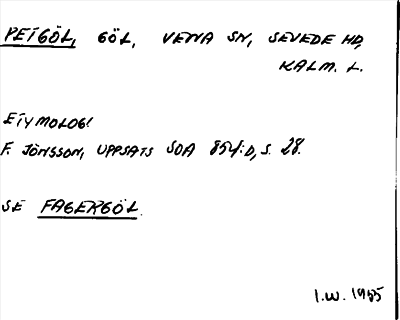 PETGÖL, GÖL, VENA SN, SEVEDE HD,
KALM. L.
ETYMOLOGI
F. JÖNSSON, UPPSATS SOA 854:D, S. 28.
SE FAGERGÖL.
I.W. 1985